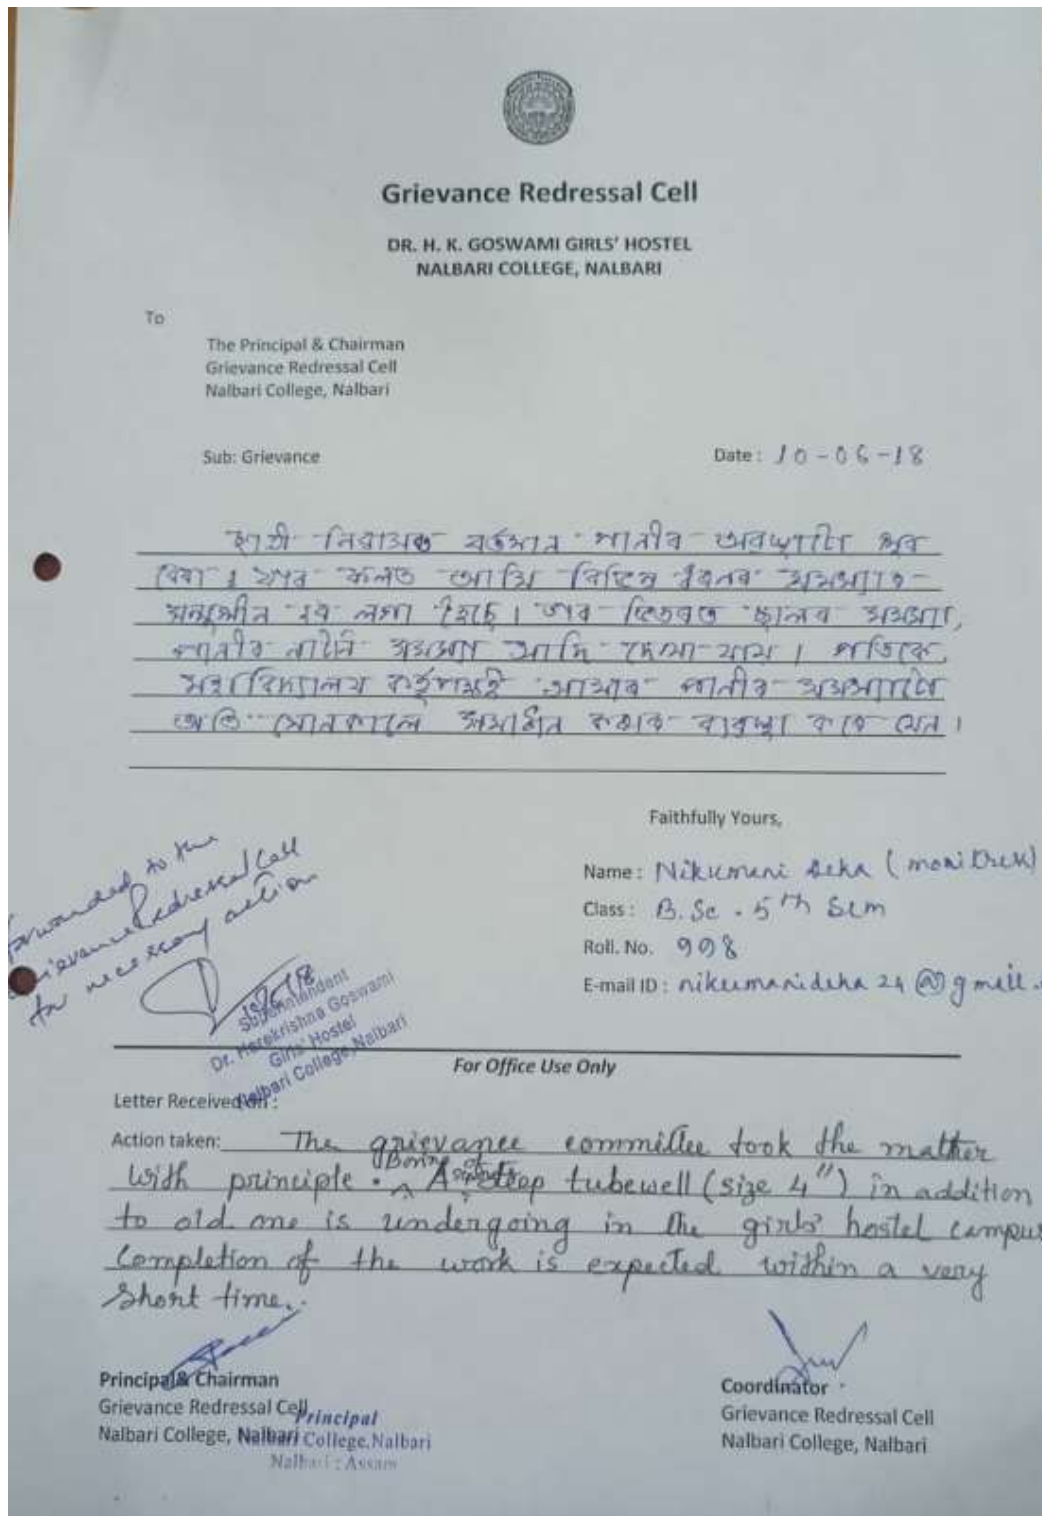 Grievance Redressal Cell
DR. H. K. GOSWAMI GIRLS' HOSTEL
NALBARI COLLEGE, NALBARI
To
The Principal & Chairman
Grievance Redressal Cell
Nalbari College, Nalbari
Sub: Grievance
Date : 10-06-18
বৰ্তমান পানীৰ
বেয়া। যাৰ ফলত আমি বিভিন্ন ধৰনৰ
সন্মুখীন হব লগা হৈছে। তাৰ ভিতৰত
পানীৰ আদি দেখা যায়।
মহাবিদ্যালয় আমাৰ পানীৰ
অতি সোনকালে সমাধান কৰাৰ ব্যৱস্থা কৰে যেন।
Faithfully Yours,
Name : Nikumani Deka (monitress)
Class : B.Sc. 5th Sem
Roll. No. 998
E-mail ID : nikumanideka24@gmail.
Forwarded to the
Grievance Redressal Cell
for necessary action
Superintendent
Dr. Harekrishna Goswami
Girls' Hostel
Nalbari College, Nalbari
For Office Use Only
Letter Received on :
Action taken: The grievance committee took the mather
with principle. Boring of A deep tubewell (size 4") in addition
to old one is undergoing in the girls' hostel campus
Completion of the work is expected within a very
short time.
Principal & Chairman
Grievance Redressal Cell
Nalbari College, Nalbari
Principal
Nalbari College, Nalbari
Nalbari : Assam
Coordinator
Grievance Redressal Cell
Nalbari College, Nalbari